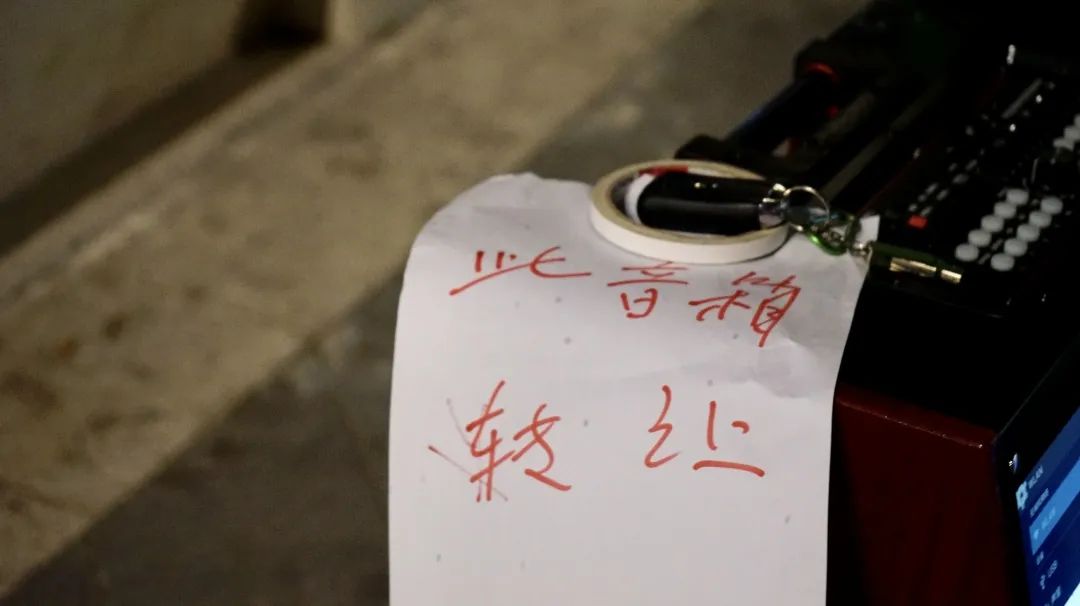 此音箱
转让